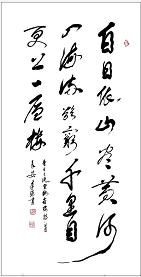 白日依山尽黄河
入海流欲窮千里目
更上一層樓